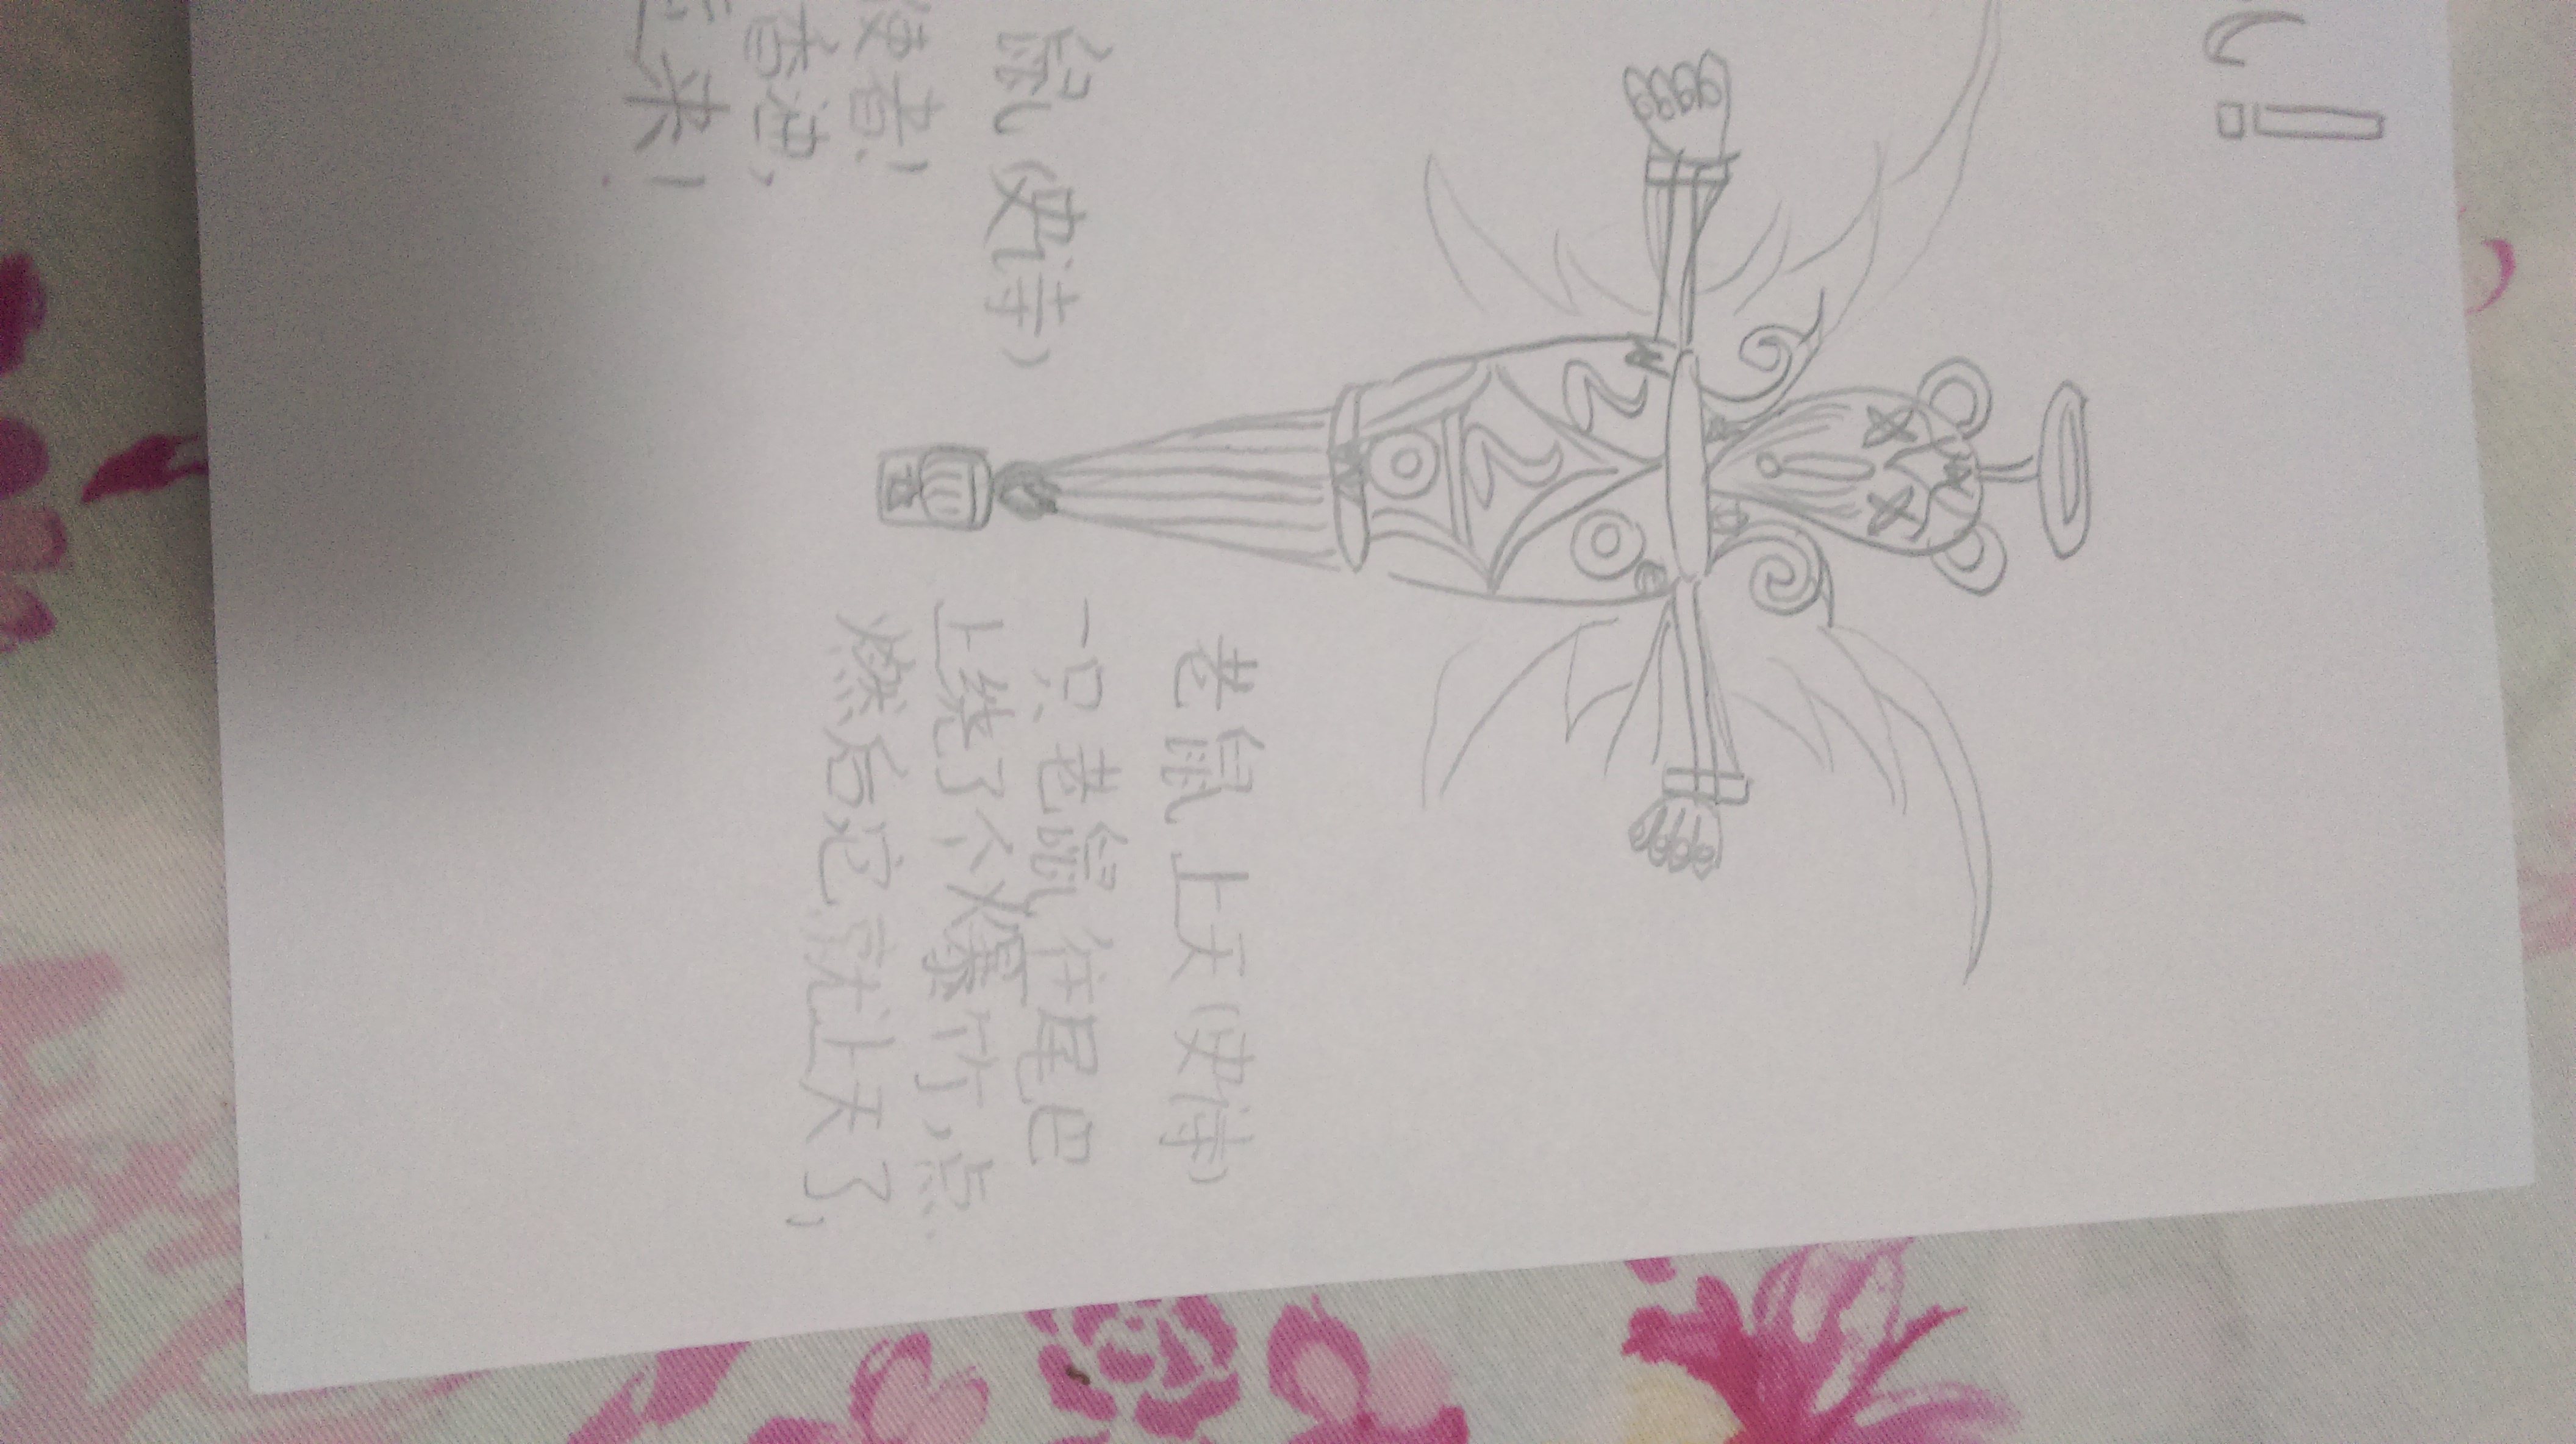 ！
鼠(史诗)
使者！
来！
老鼠上天(史诗)
一只老鼠在尾巴
上绕了个爆竹,点
燃后它就上天了,